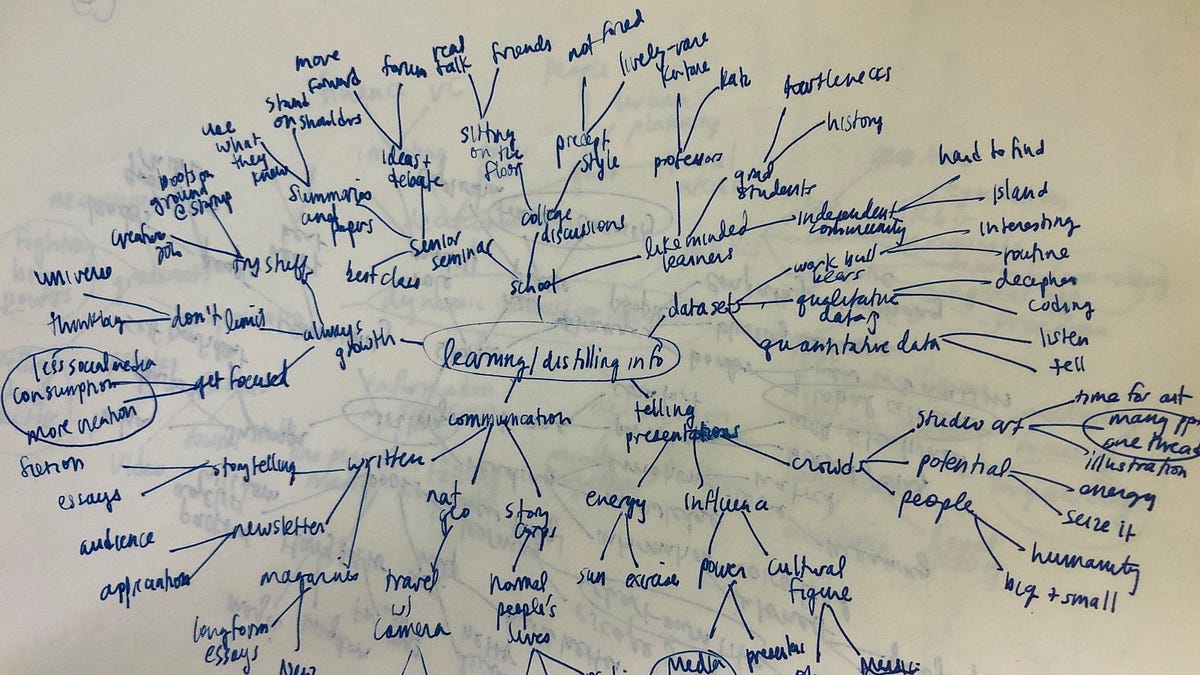 learning/distilling info
school
senior
seminar
best class
summaries
and
papers
use
what
they
know
stand
on shoulders
ideas +
debate
move
forward
forum
college
discussions
sitting
on the
floor
real
talk
friends
precept
style
not forced
like minded
learners
professors
kate
grad
students
history
independent
community
hard to find
island
datasets
work bull
bears
interesting
routine
qualitative
data
decipher
coding
quantitative data
listen
tell
telling
presentations
crowds
studio art
time for art
many
one
illustration
potential
energy
seize it
people
humanity
big + small
influence
power
media
cultural
figure
energy
sun
exercise
communication
story
corps
normal
people's
lives
nat
geo
travel
w/
camera
written
magazines
longform
essays
New
newsletter
audience
storytelling
fiction
essays
always
growth
get focused
less social media
consumption
more creation
don't limit
universe
thinking
try stuff
creative
job
boots on
ground
@ startup